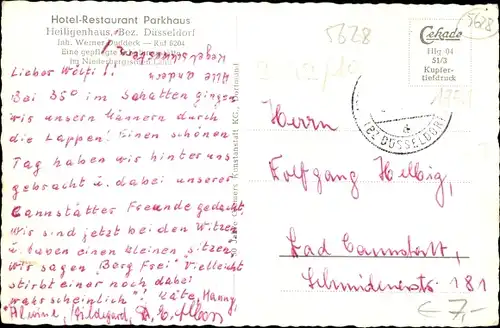 Hotel-Restaurant Parkhaus
Heiligenhaus, Bez. Düsseldorf
Inh. Werner Duddeck — Ruf 6204
Eine gepflegte
im Niederbergischen Land
Alle anderen
Lieber Wölfi!!
Bei 35° im Schatten gingen
wir unsern Männern durch
die Lappen! Einen schönen
Tag haben wir hinter uns
gebracht u. dabei unserer
Cannstätter Freunde gedacht,
wir sind jetzt bei den Witzen
u. haben einen kleinen "sitzen",
wir sagen "Berg Frei" Vielleicht
stirbt einer noch dabei
wahrscheinlich! Käte, Hanny
Alwine, Hildegard,
Cramers Kunstanstalt KG., Dortmund
5628
5628
Cekade
Hlg 04
51/3
Kupfer-
tiefdruck
(BZ DÜSSELDORF)
a
Herrn
Wolfgang Helbig,
Bad Cannstatt,
Schmidenerstr. 181
€ 7,-